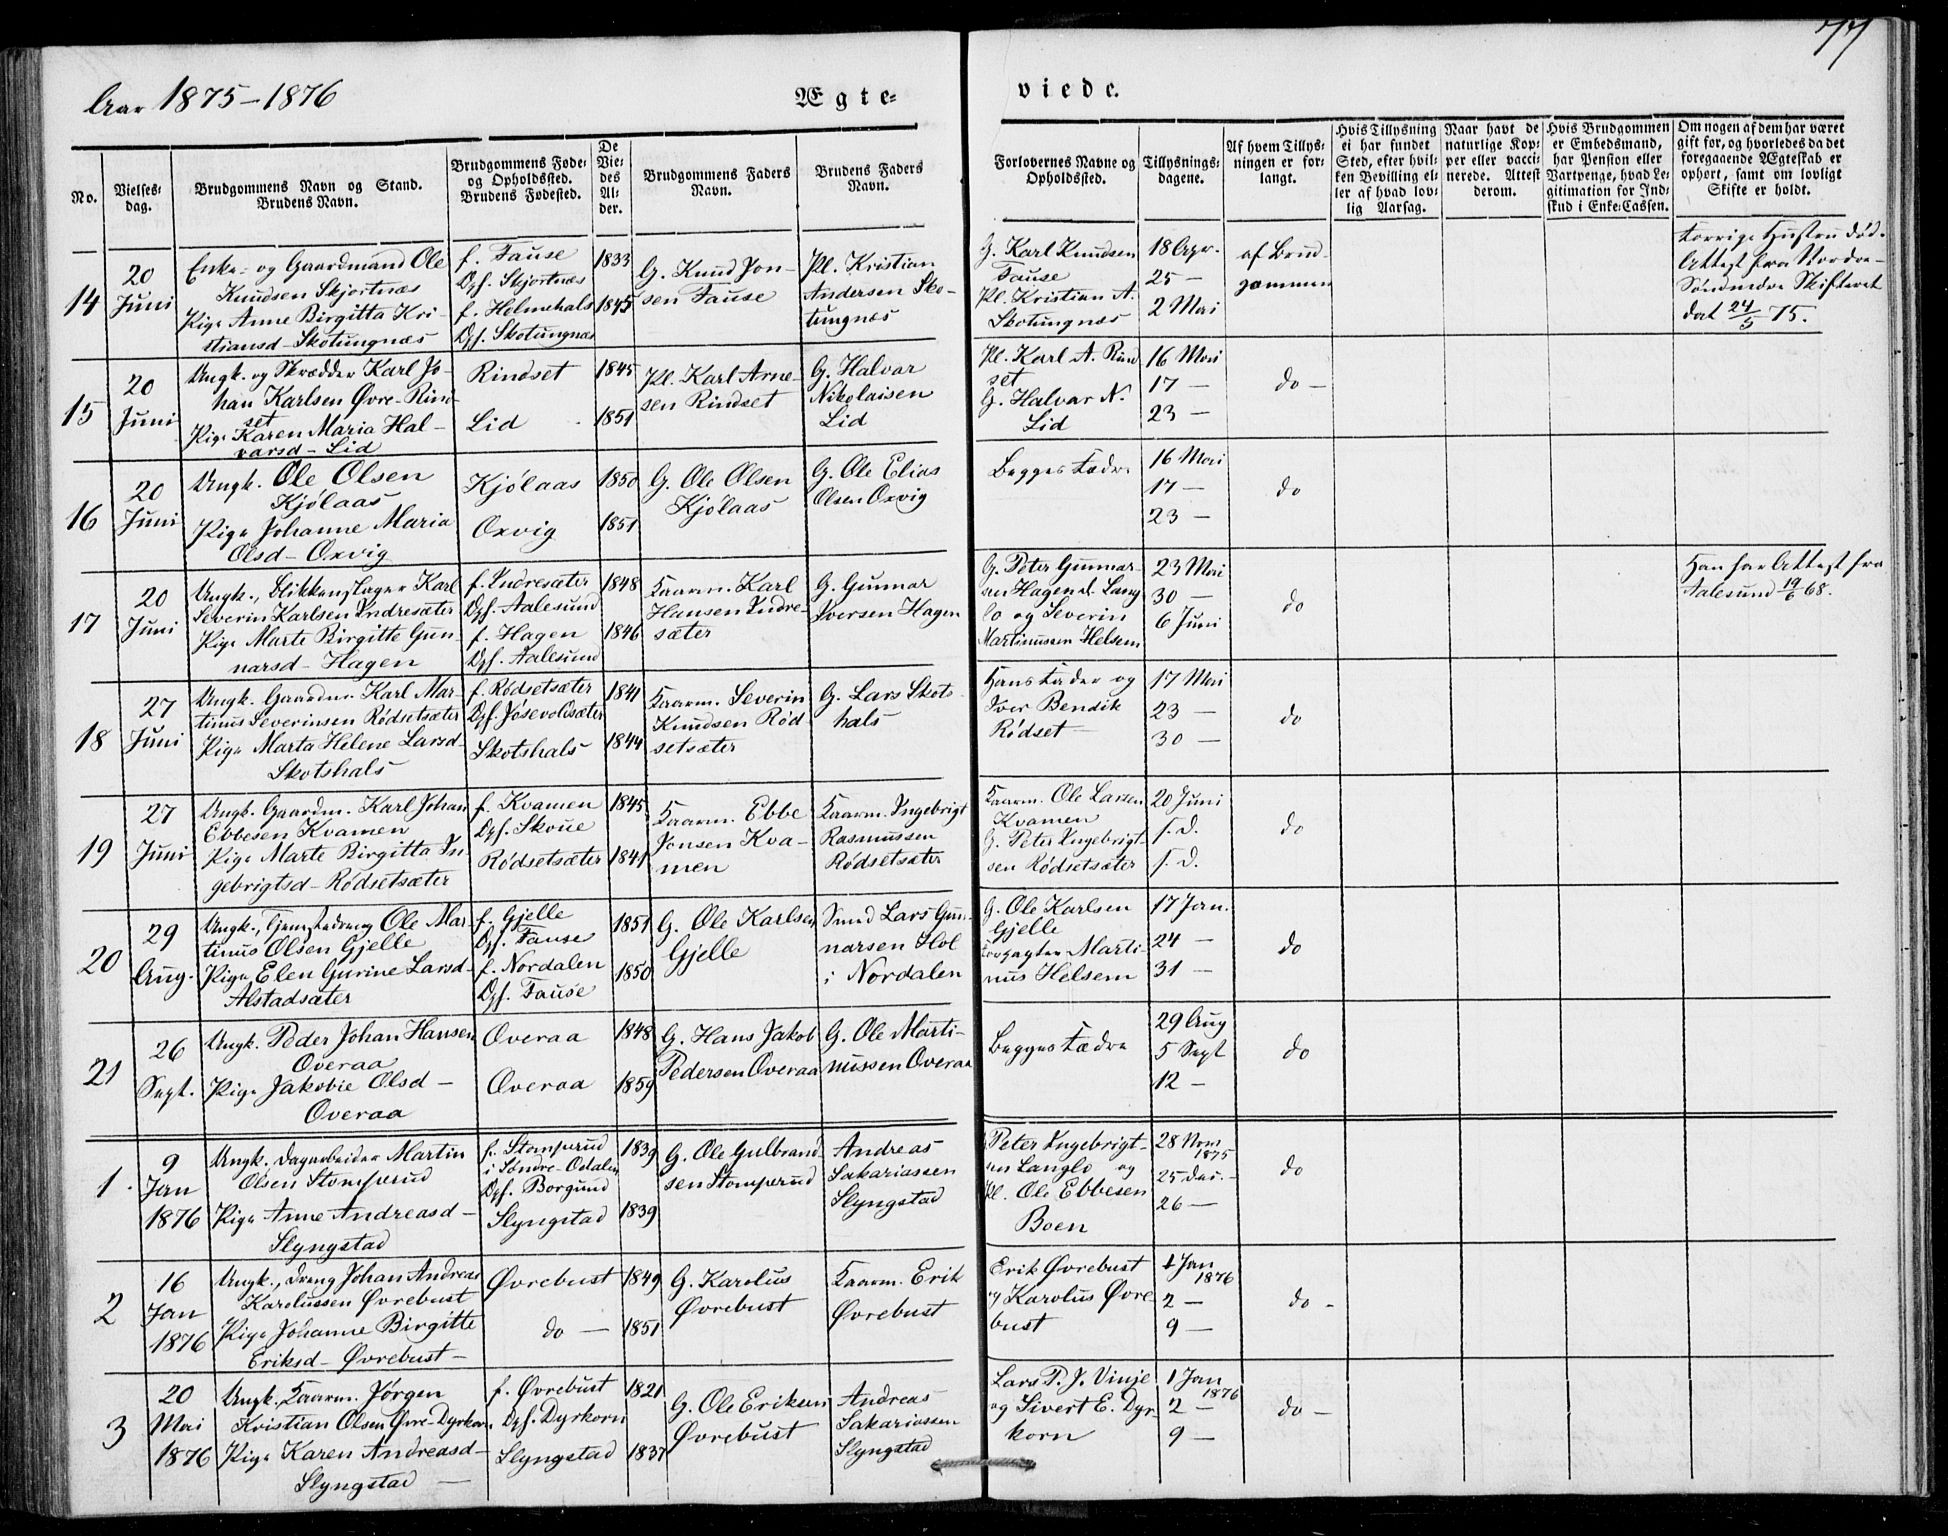 77
Aar 1875-1876
Ægte-
viede.
No.
Vielses-
dag.
Brudgommens Navn og Stand.
Brudens Navn.
Brudgommens Føde-
og Opholdssted.
Brudens Fødested.
De
Vie-
des
Al-
der.
Brudgommens Faders
Navn.
Brudens Faders
Navn.
Forlovernes Navne og
Opholdssted.
Tillysnings-
dagene.
Af hvem Tillys-
ningen er for-
langt.
Hvis Tillysning
ei har fundet
Sted, efter hvil-
ken Bevilling el-
ler af hvad lov-
lig Aarsag.
Naar havt de
naturlige Kop-
per eller vacci-
nerede. Attest
derom.
Hvis Brudgommen
er Embedsmand,
har Pension eller
Vartpenge, hvad Le-
gitimation for Ind-
skud i Enke-Cassen.
Om nogen af dem har været
gift før, og hvorledes da det
foregaaende Ægteskab er
ophørt, samt om lovligt
Skifte er holdt.
14
20
Juni
Enke- og Gaardmand Ole
Knudsen Skjortnæs
Pige Anne Birgitta Kri-
stiansd- Skotungnæs
f. Fause
Opf. Skjortnæs
f. Helmehals
Opf. Skotungnæs
1833
1845
G. Knud Jon-
sen Fause
Pl. Kristian
Andersen Sko-
tungnæs
G. Karl Knudsen
Fause
Pl. Kristian A.
Skotungnæs
18 Apr.
25 -
2 Mai
af Brud-
gommen
Forrige Hustru død.
Attest fra Nordre-
Søndmøre Skifteret
dat 24/5 75.
15
20
Juni
Ungk. og Skrædder Karl Jo-
han Karlsen Øvre-Rind-
set
Pige Karen Maria Hal-
varsd- Lid
Rindset
Lid
1845
1851
Pl. Karl Arne-
sen Rindset
G. Halvar
Nikolaisen
Lid
Pl. Karl A. Rind
set
G. Halvar N.
Lid
16 Mai
17 -
23 -
do -
16
20
Juni
Ungk. Ole Olsen
Kjølaas
Pige Johanne Maria
Olsd- Oxvig
Kjølaas
Oxvig
1850
1851
G. Ole Olsen
Kjølaas
G. Ole Elias
Olsen Oxvig
Begges Fædre
16 Mai
17 -
23 -
do
17
20
Juni
Ungk., Blikkenslager Karl
Severin Karlsen Indresæter
Pige Marte Birgitte Gun-
narsd- Hagen
f. Indresæter
Opf. Aalesund
f. Hagen
Opf. Aalesund
1848
1846
Kaarm. Karl
Hansen Indre-
sæter
G. Gunnar
Iversen Hagen
G. Peter Gunnar-
sen Hagen d. Lang
lo og Severin
Martinussen Helsem
23 Mai
30 -
6 Juni
do
Han har Attest fra
Aalesund 19/6 68.
18
27
Juni
Ungk. Gaardm. Karl Mar-
tinus Severinsen Rødsetsæter
Pige Marta Helene Larsd-
Skotshals
f. Rødsetsæter
Opf. Jøsevolsæter
Skotshals
1841
1844
Kaarm. Severin
Knudsen Rød-
setsæter
G. Lars Skots-
hals
Hans Fader og
Iver Bendik
Rødset
17 Mai
23 -
30 -
do
19
27
Juni
Ungk. Gaardm. Karl Johan
Ebbesen Kvamen
Pige Marte Birgitta In
gebrigtsd- Rødsetsæter
f. Kvamen
Opf. Skoue
Rødsetsæter
1845
1841
Kaarm. Ebbe
Jonsen Kva-
men
Kaarm. Ingebrigt
Rasmussen
Rødsetsæter
Kaarm. Ole Larsen
Kvamen
G. Peter Ingebrigt-
sen Rødsetsæter
20 Juni
s. d.
s. d.
do
20
29
Aug.
Ungk., Ole Mar-
tinus Olsen Gjelle
Pige Elen Gurine Larsd-
Alstadsæter
f. Gjelle
Opf. Fause
f. Nordalen
Opf. Fause
1851
1850
G. Ole Karlsen
Gjelle
Smed Lars Gun-
narsen Hol
i Nordalen
G. Ole Karlsen
Gjelle
Forpagter Marti-
nus Helsem
17 Jan.
24 -
31 -
do
21
26
Sept.
Ungk. Peder Johan Hansen
Overaa
Pige Jakobie Olsd -
Overaa
Overaa
Overaa
1848
1859
G. Hans Jakob
Pedersen Overaa
G. Ole Marti-
nussen Overaa
Begges Fædre
29 Aug
5 Sept
12 -
do
1.
9
Jan
1876
Ungk. Dagarbeider Martin
Olsen Stomperud
Pige Anne Andreasd -
Slyngstad
f. Stomperud
i Søndre-Odalen
Opf. Borgund
Slyngstad
1839
1839
G. Ole Gulbrand-
sen Stomperud
Andreas
Sakariassen
Slyngstad
Peter Ingebrigt-
sen Langlo og
Pl. Ole Ebbesen
Boen
28 Nov.
1875
25 Dec. -
26 -
do
2
16
Jan
1876
Ungk., Dreng Johan Andreas
Karolussen Øvrebust
Pige Johanne Birgitte
Eriksd- Øvrebust-
Øvrebust
do -
1849
1851
G. Karolus
Øvrebust
Kaarm. Erik
Øvrebust
Erik Øvrebust
og Karolus Øvre
bust
1 Jan
1876
2 -
9 -
do -
3
20
Mai
1876
Ungk. Kaarm. Jørgen
Kristian Olsen Øvre-Dyrkorn.
Pige Karen Andreasd-
Slyngstad -
f. Øvrebust
Opf. Dyrkorn
Slyngstad
1821
1837
G. Ole Eriksen
Øvrebust
Andreas
Sakariassen
Slyngstad
Lars P. J. Vinje
og Sivert E. Dyr
korn
1 Jan
1876
2 -
9 -
do -